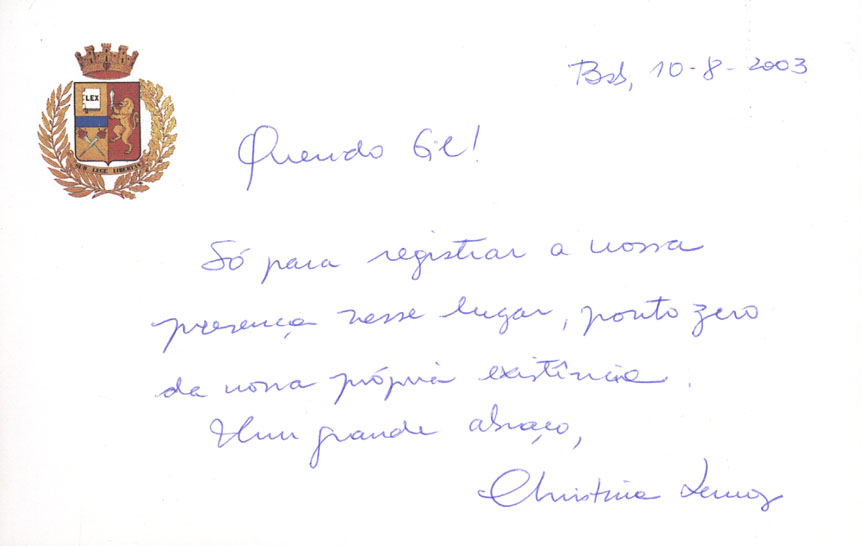 LEX
SUB LEGE LIBERTAS
Bsb, 10-8-2003
Querido Gil!
Só para registrar a nossa
presença nesse lugar, ponto zero
da nossa própria existência.
Hum grande abraço,
Christina Lemos